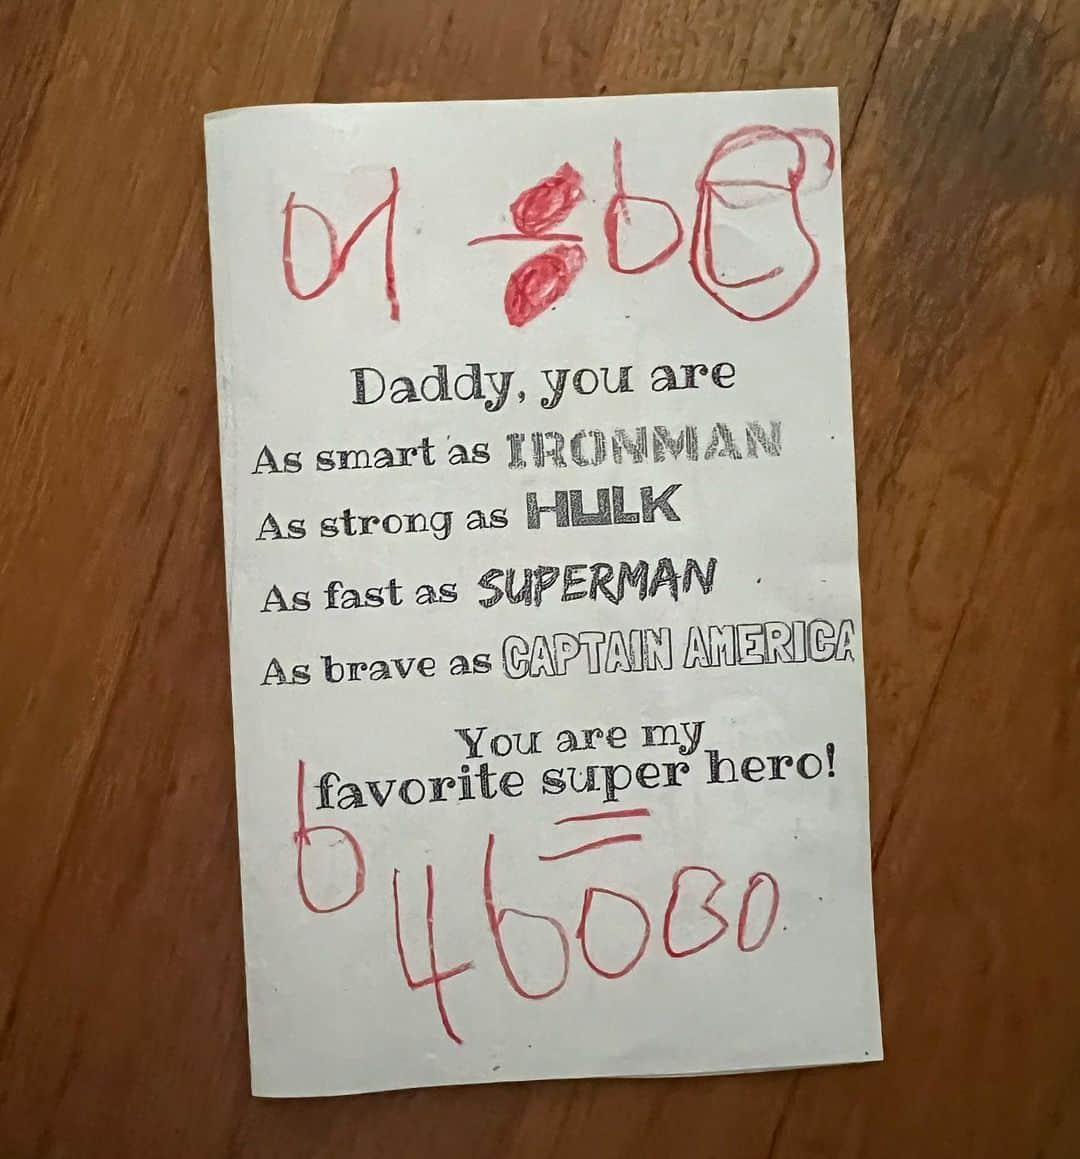 Daddy, you are
As smart as IRONMAN
As strong as HULK
As fast as SUPERMAN
As brave as CAPTAIN AMERICA
You are my
favorite super hero!